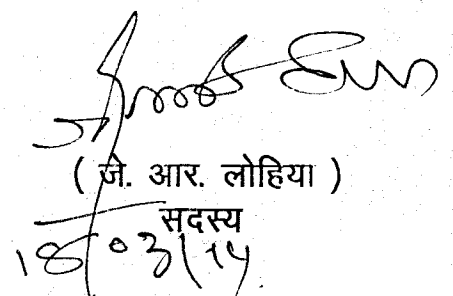 ( जे. आर. लोहिया )
सदस्य
18/03/14